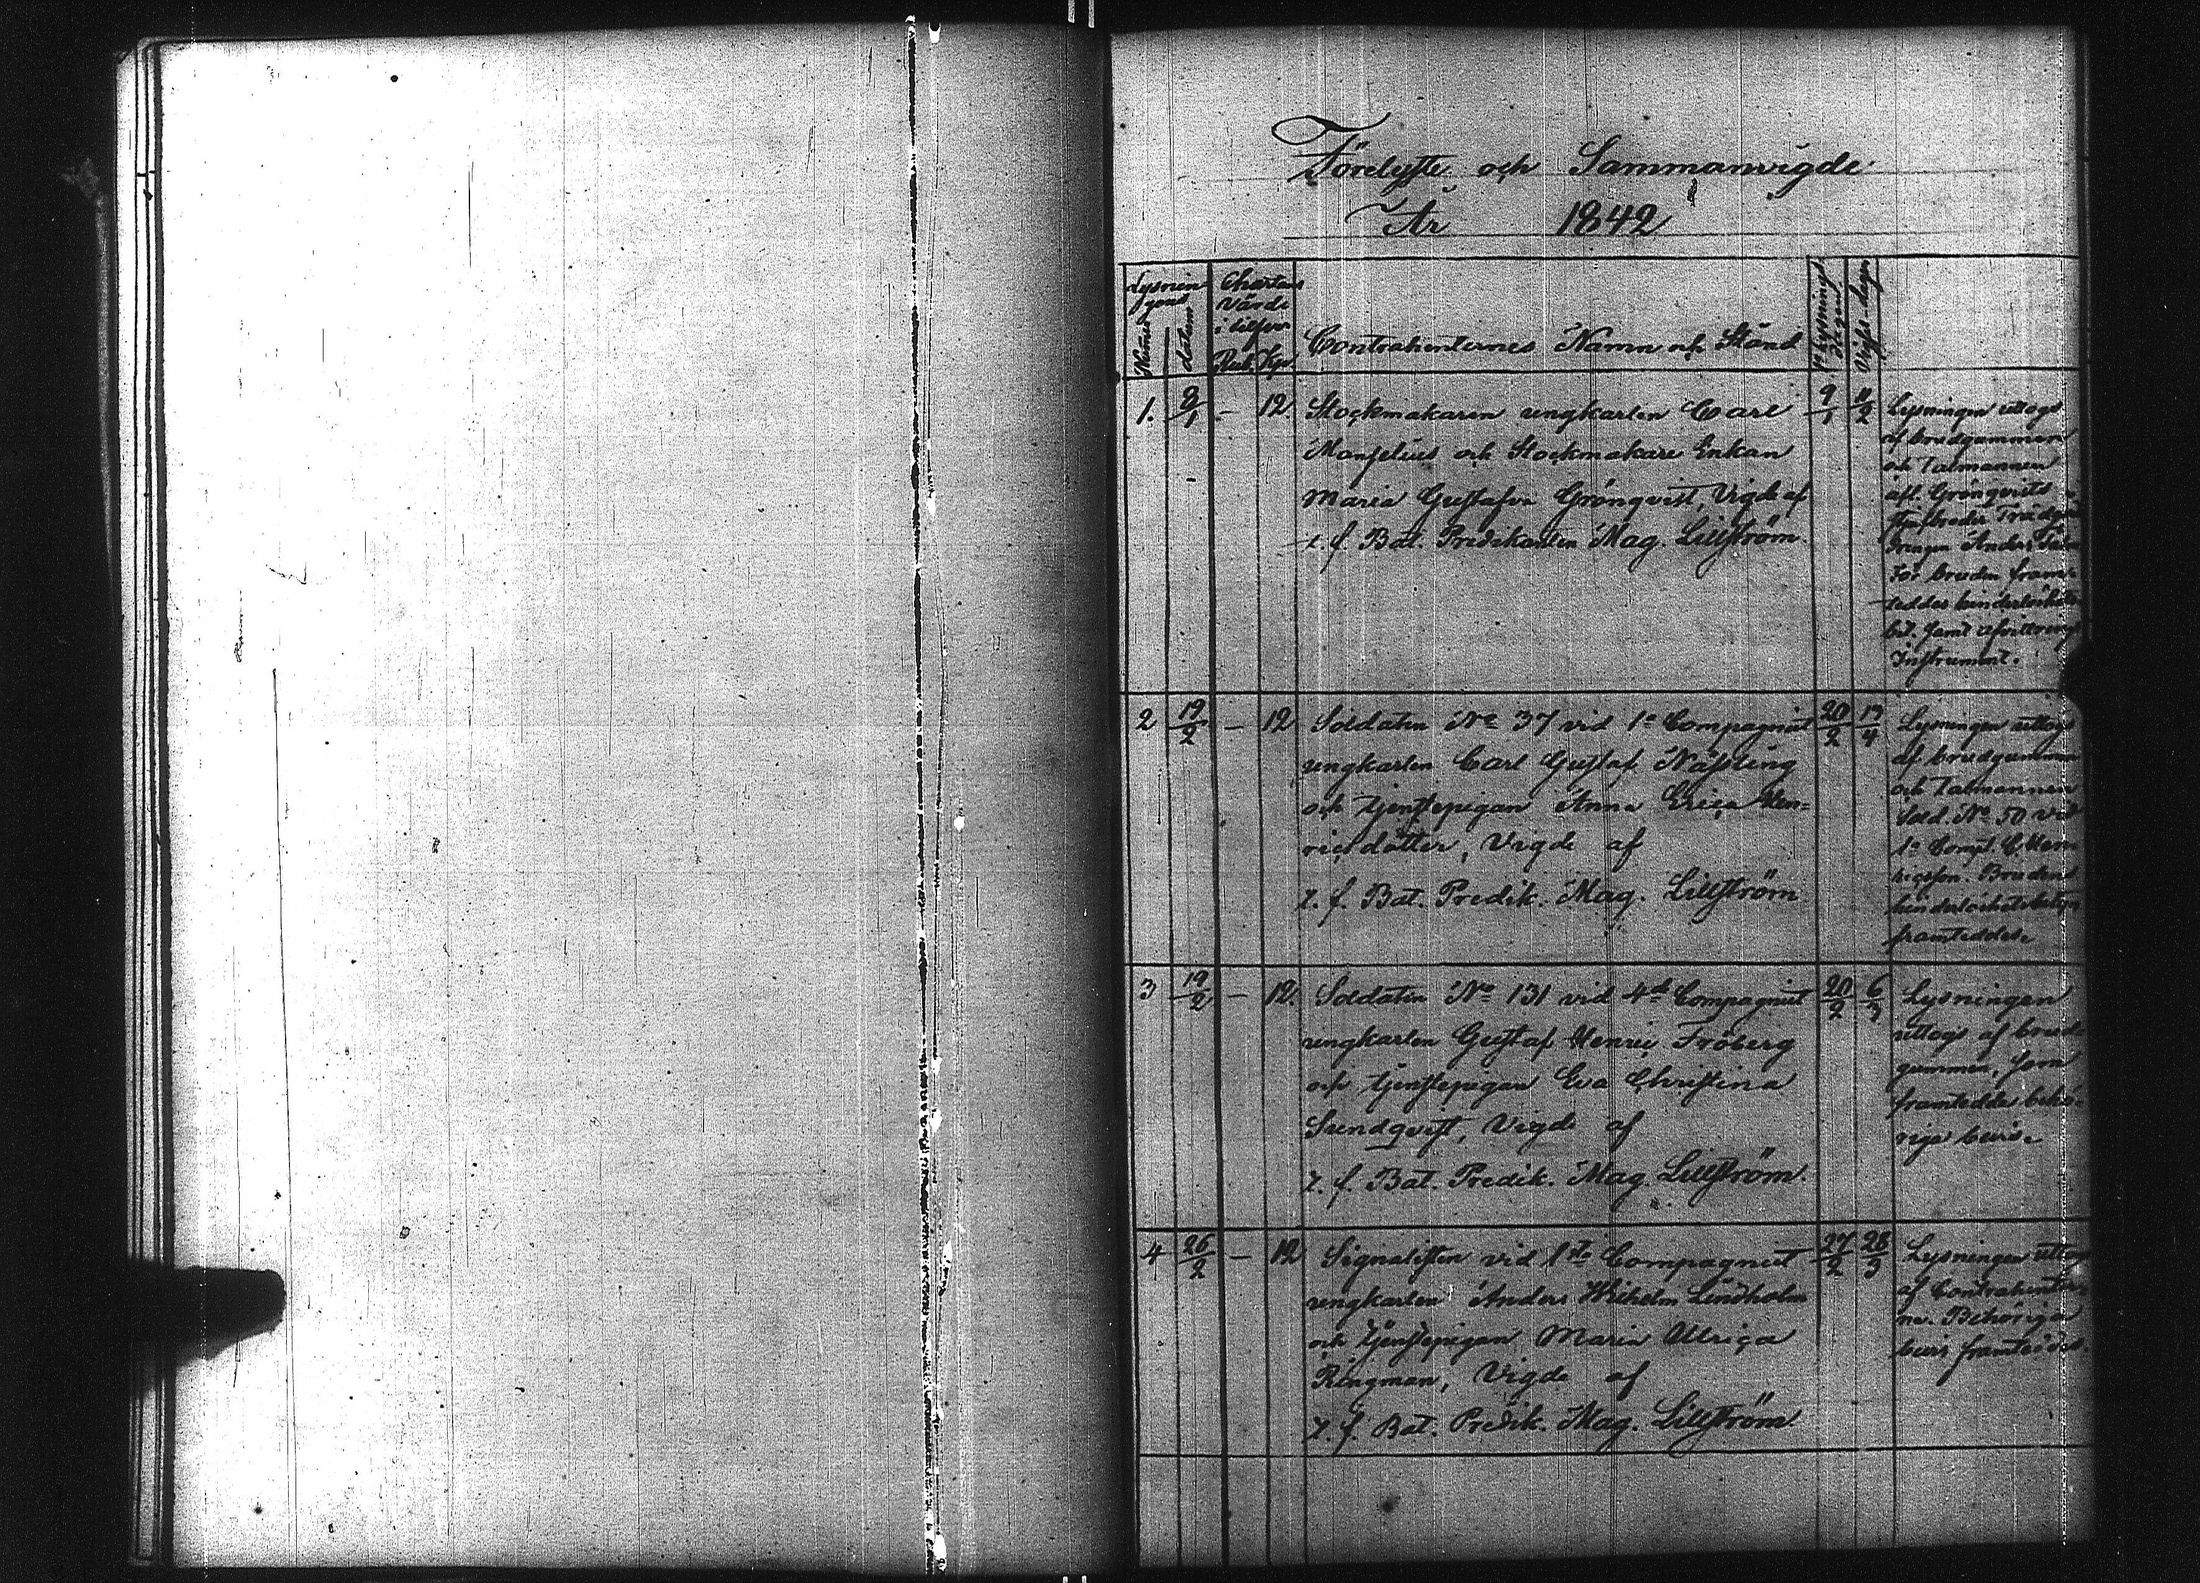 Förelyste och Sammanvigde
År 1842
Lysnin
gens
Num
datum
Charta
Värde
i silfver
Rub. Kp.
Contrahenternes Namn och Stånd
1a Lysnings
dagen
Vigs-dagen
1. 8/1 – 12 Stockmakaren ungkarlen Carl 9/1 11/2
Monselius och Stockmakare Enkan
Maria Gustafva Grönqvist, Vigde af
t. f. Bat. Predikanten Mag. Lillström
Lysningen uttogs
af brudgummen
och Talmannen
afl. Grönqvists
Anders
För bruden fram-
teddes hinderlöshets
bet. samt afvittrings
Instrument.
2 19/2 – 12 Soldaten No 37 vid 1a Compagniet 20/2 17/4
ungkarlen Carl Gustaf Näsling
och tjenstepigan Anna Erica Hen-
ricsdotter, Vigde af
t. f. Bat. Predik. Mag. Lillström
Lysningen uttogs
af brudgummen
och Talmannen
Sold. No 50 vid
1a Comp. C. Hen-
ricsson. Bruden
hinderlöshetsbetyg
framteddes.
3 19/2 – 12. Soldaten No 131 vid 4de Compagniet 20/2 6/3
ungkarlen Gustaf Henric Fröberg
och tjenstepigan Eva Christina
Sundqvist, Vigde af
t. f. Bat. Predik. Mag. Lillström.
Lysningen
uttogs af brud-
gummen, som
framtedde behö-
riga bevis.
4 26/2 – 12 Signalisten vid 1sta Compagniet 27/2 28/3
ungkarlen Anders Wilhelm Lindholm
och tjenstepigan Maria Ulrica
Ringman, Vigde af
t. f. Bat. Predik. Mag. Lillström
Lysningen uttogs
af Contrahenter-
na. Behöriga
bevis framteddes.